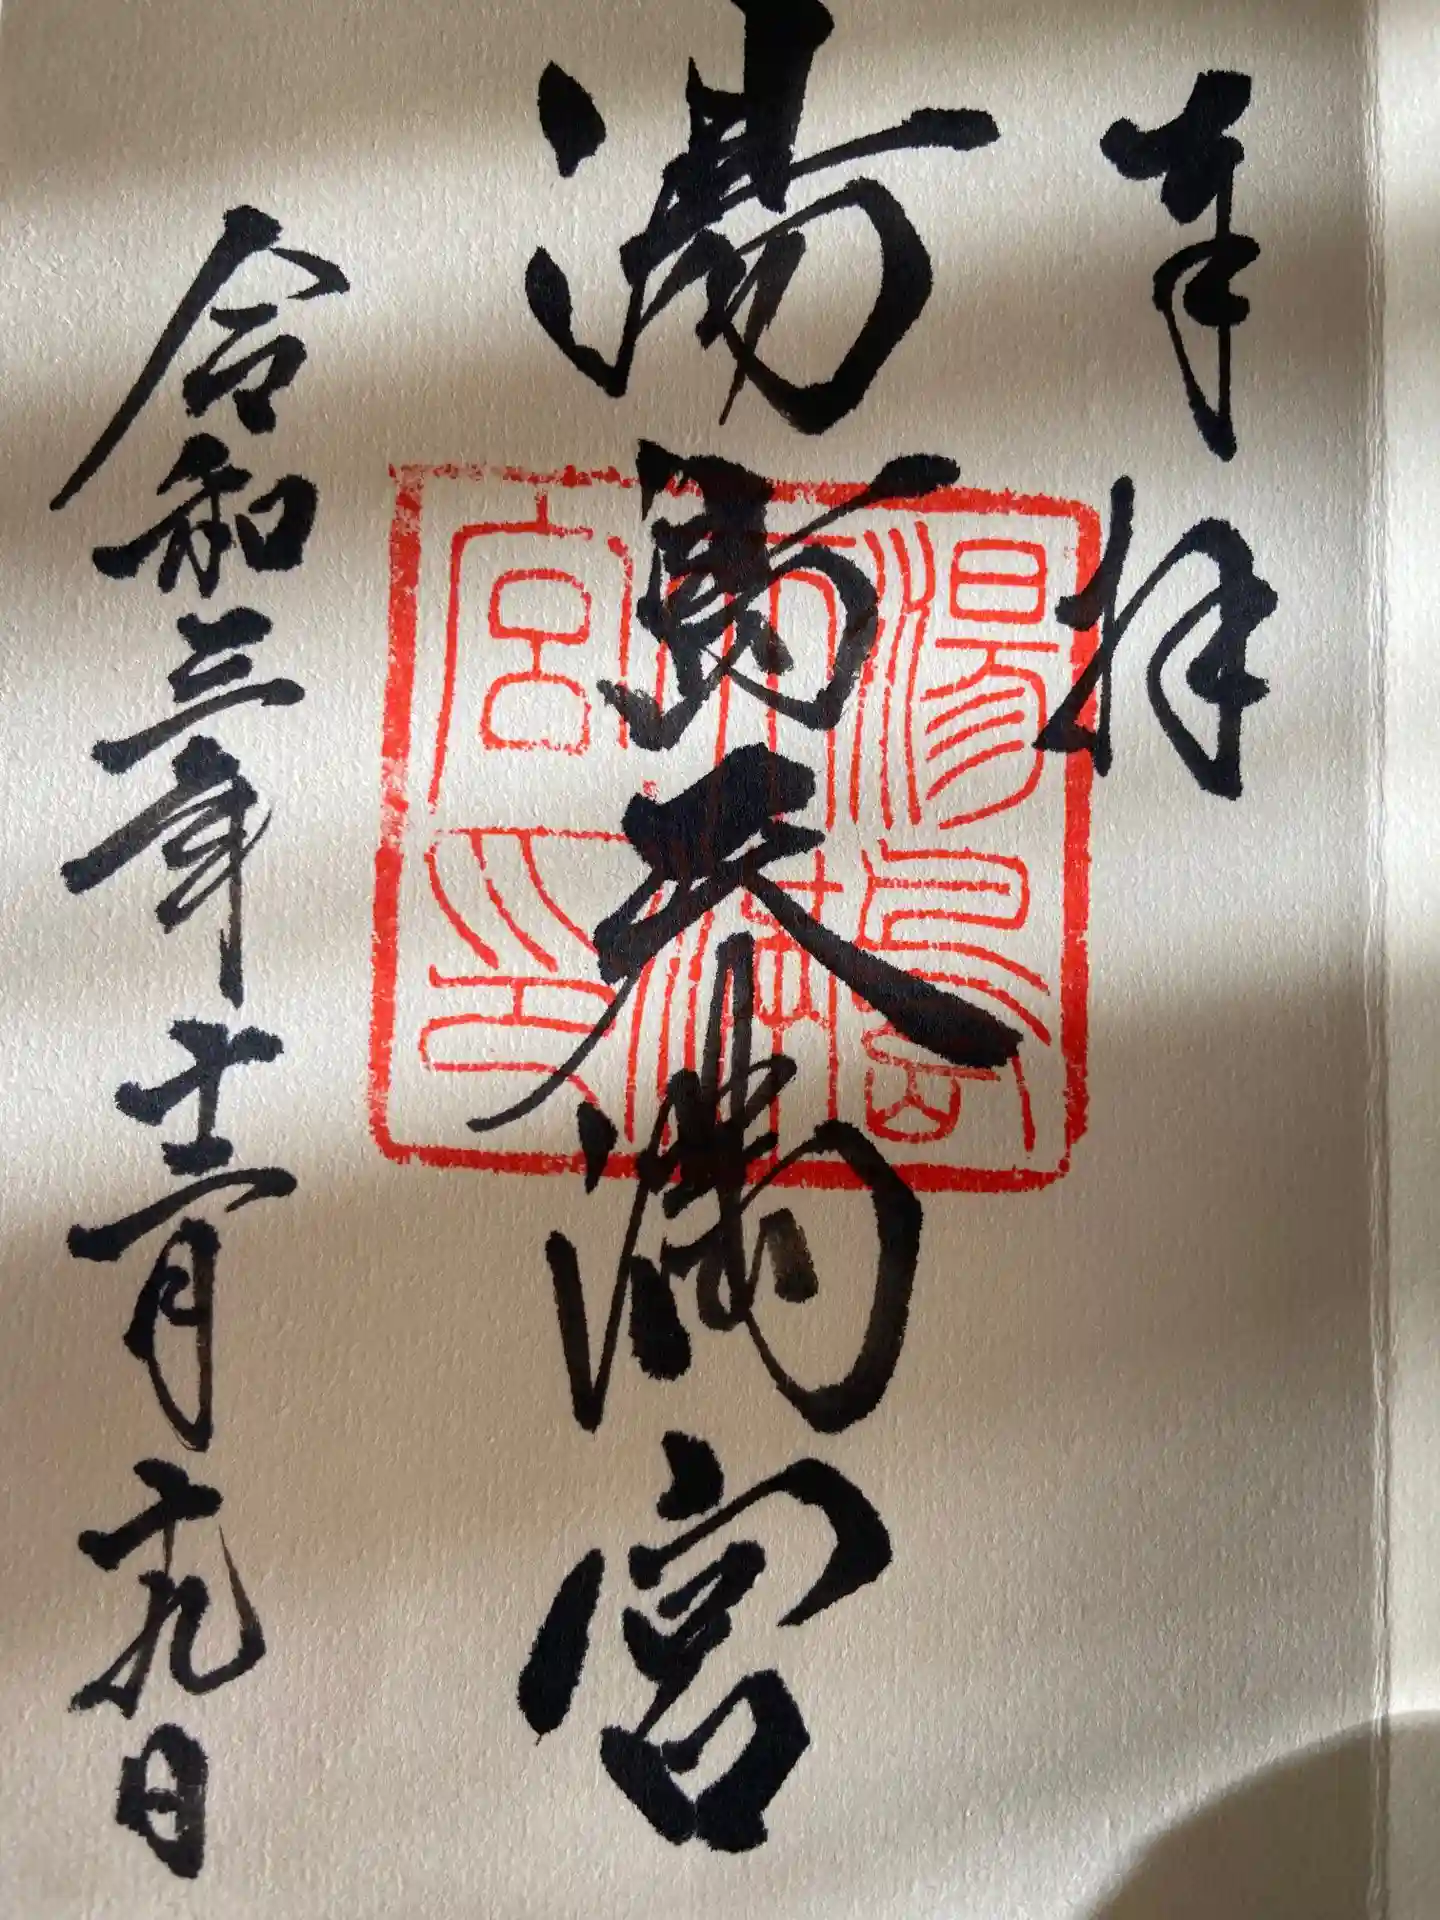 奉拝
湯島天満宮
湯島天満宮印
令和三年十二月十九日